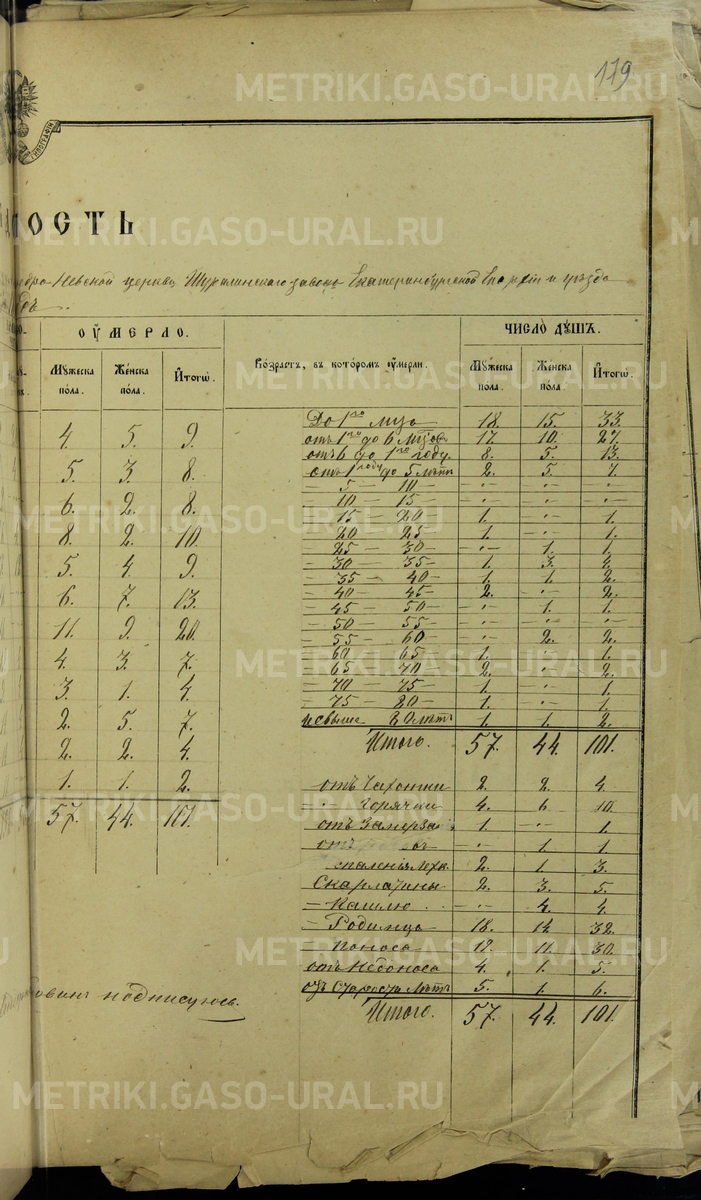 179
METRIKI.GASO-URAL.RU
ОСТЬ
Невской церкви Шуралинскаго завода Екатеринбургской Епархіи и уѣзда
ОУМЕРЛО.
Возрастъ, въ которомъ оумерли.
ЧИСЛО ДУШЪ.
Мужеска пола. Женска пола. Итого.
Мужеска пола. Женска пола. Итого.
4. 5. 9.
5. 3. 8.
6. 2. 8.
8. 2. 10.
5. 4. 9.
6. 7. 13.
11. 9. 20.
4. 3. 7.
3. 1. 4.
2. 5. 7.
2. 2. 4.
1. 1. 2.
57. 44. 101.
До 1го мца 18. 15. 33.
отъ 1го до 6 мцовъ 17. 10. 27.
отъ 6 до 1го году. 8. 5. 13.
отъ 1 году до 5 лѣтъ 2. 5. 7.
— 5 — 10 —
— 10 — 15 —
— 15 — 20 1. — 1.
— 20 — 25 1. — 1.
— 25 — 30 — 1. 1.
— 30 — 35 — 1. 3. 4.
— 35 — 40 — 1. 1. 2.
— 40 — 45 — 2. — 2.
— 45 — 50 — — 1. 1.
— 50 — 55 —
— 55 — 60 — 2. 2.
— 60 — 65 1. — 1.
— 65 — 70 2. — 2.
— 70 — 75 — 1. — 1.
— 75 — 80 — 1. — 1.
и свыше 80 лѣтъ 1. 1. 2.
Итого. 57. 44. 101.
отъ Чахотки 2. 2. 4.
— Горячки 4. 6. 10.
отъ 1. — 1.
отъ — 1. 1.
2. 1. 3.
Скарлатины 2. 3. 5.
— Кашлю — 4. 4.
— Родимца 18. 14. 32.
— Поноса 11. 30.
отъ 4. 1. 5.
отъ Старости Лѣтъ 5. 1. 6.
Итого. 57. 44. 101.
подписуюсь.